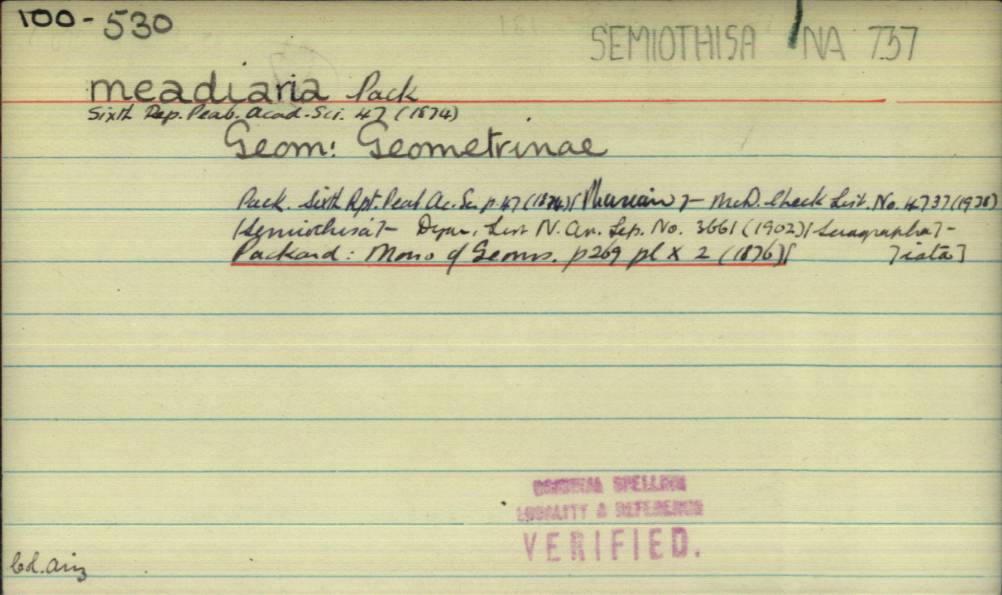 100-530
SEMIOTHISA / NA 737
meadiaria Pack
Sixth Rep. Peab. Acad. Sci. 47 (1874)
Geom: Geometrinae
Pack. Sixth Rpt. Peab Ac. Sc. p. 47 (1874) [ ] - McD. Check List. No. 4737 (1938)
[Semiothisa] - Dyar, List N. Am. Lep. No. 3661 (1902) [Sciagraphia] -
Packard: Mono of Geoms. p269 pl X 2 (1876) [ ]iata]
ORIGINAL SPELLING
LOCALITY & REFERENCE
VERIFIED.
Col. Ariz